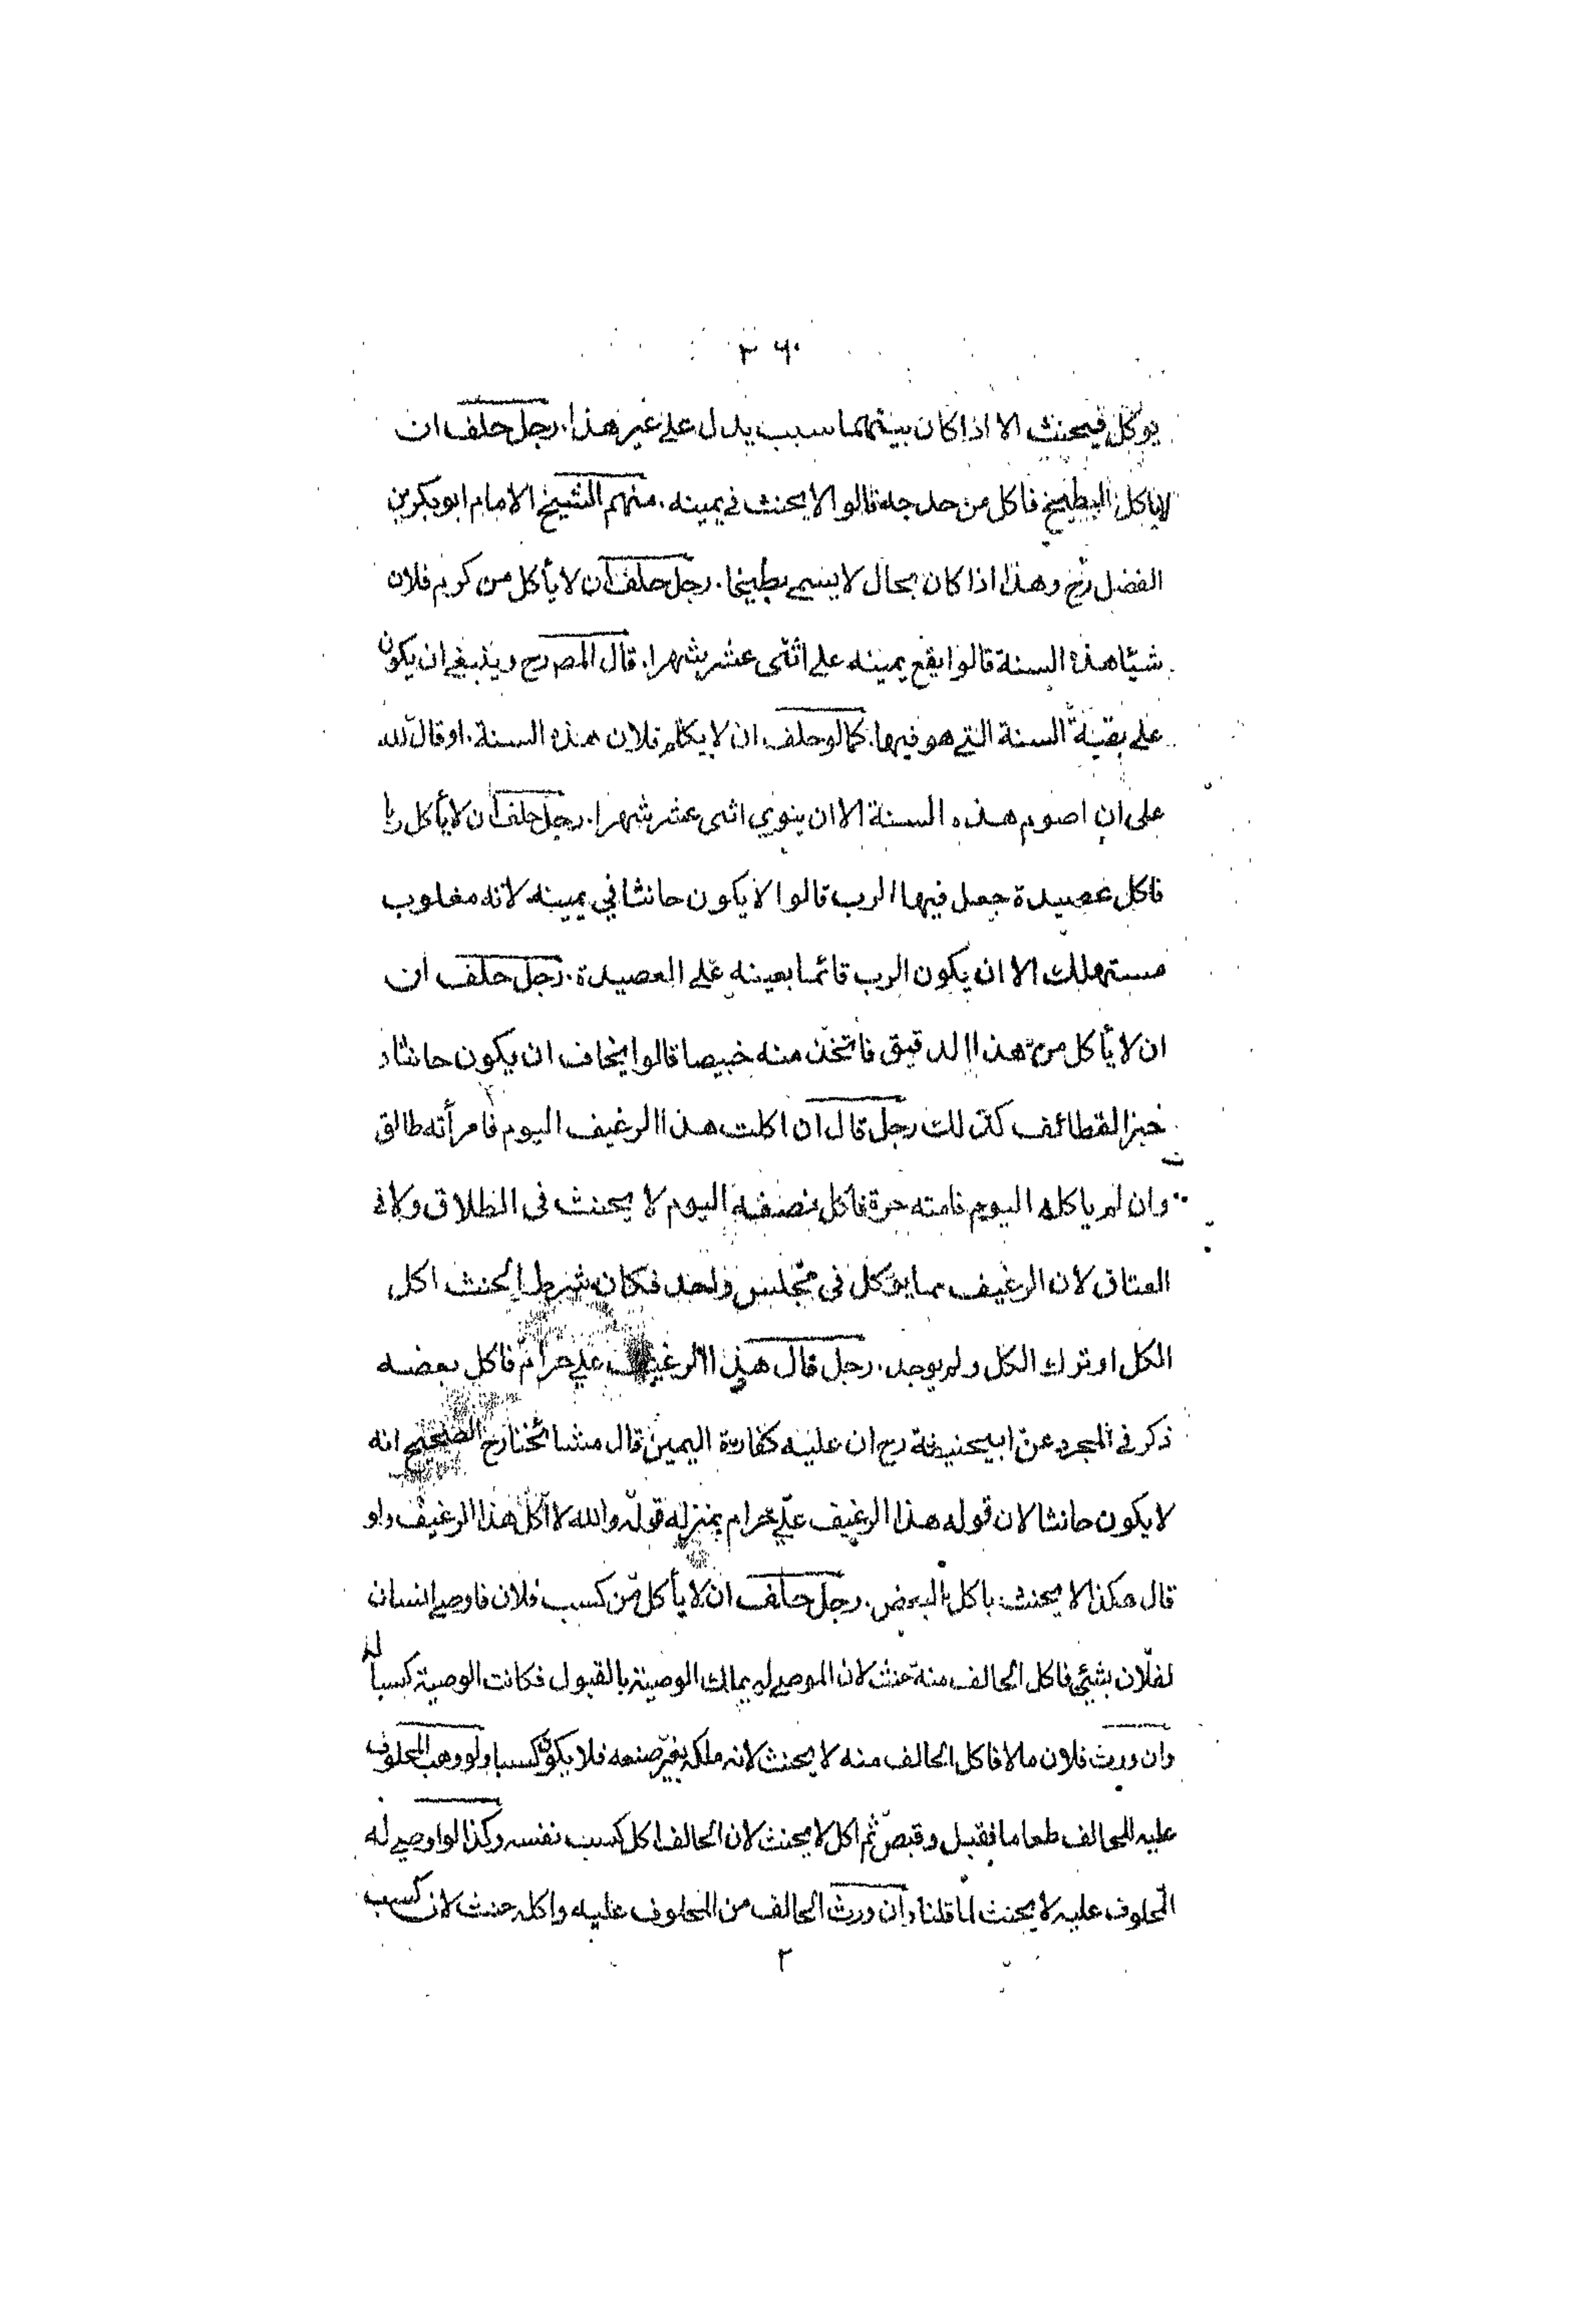 ٢٦٠
يوكل فيحنث الا اذا كان بينهما سبب يدل على غير هذا. رجل حلف ان
لاياكل البطيخ فاكل من حدجه قالوا لايحنث في يمينه. منهم الشيخ الامام ابوبكربن
الفضل رح وهذا اذا كان بحال لا يسمى بطيخا. رجل حلف ان لا يأكل من كريم فلان
شيئا هذه السنة قالوا يقع يمينه على اثنى عشر شهرا. قال المص رح وينبغي ان يكون
على بقية السنة التي هو فيها. كما لو حلف ان لا يكلم فلان هذه السنة. او قال لله
على ان اصوم هذه السنة الا ان ينوي اثنى عشر شهرا. رجل حلف ان لا يأكل ربا
فاكل عصيدة جعل فيها الرب قالوا لا يكون حانثا في يمينه لانه مغلوب
مستهلك الا ان يكون الرب قائما بعينه على العصيدة. رجل حلف ان
ان لا يأكل من هذا الدقيق فاتخذ منه خبيصا قالوا يخاف ان يكون حانثا و
خبز القطائف كذلك رجل قال ان اكلت هذا الرغيف اليوم فامرأته طالق
وان لم ياكله اليوم فامته حرة فاكل نصفه اليوم لا يحنث فى الطلاق ولا في
العتاق لان الرغيف مما يوكل فى مجلس واحد فكان شرط الحنث اكل
الكل او ترك الكل ولم يوجد. رجل قال هذا الرغيف على حرام فاكل بعضه
ذكر في المجرد عن ابيحنيفة رح ان عليه كفارة اليمين قال مشائخنا رح الصحيح انه
لا يكون حانثا لان قوله هذا الرغيف علي حرام بمنزلة قوله والله لا آكل هذا الرغيف ولو
قال هكذا لا يحنث باكل البعض. رجل حلف ان لا يأكل من كسب فلان فاوصى انسان
لفلان بشيئ فاكل الحالف منه حنث لان الموصى له يملك الوصية بالقبول فكانت الوصية كسبا له
وان ورث فلان مالا فاكل الحالف منه لا يحنث لانه ملكه بغير صنعه فلا يكون كسبا ولو وهب المحلوف
عليه للحالف طعاما فقبل وقبض ثم اكل لا يحنث لان الحالف اكل كسب نفسه وكذا لو اوصى له
المحلوف عليه لا يحنث لما قلنا وان ورث الحالف من المحلوف عليه واكله حنث لان كسب
٢